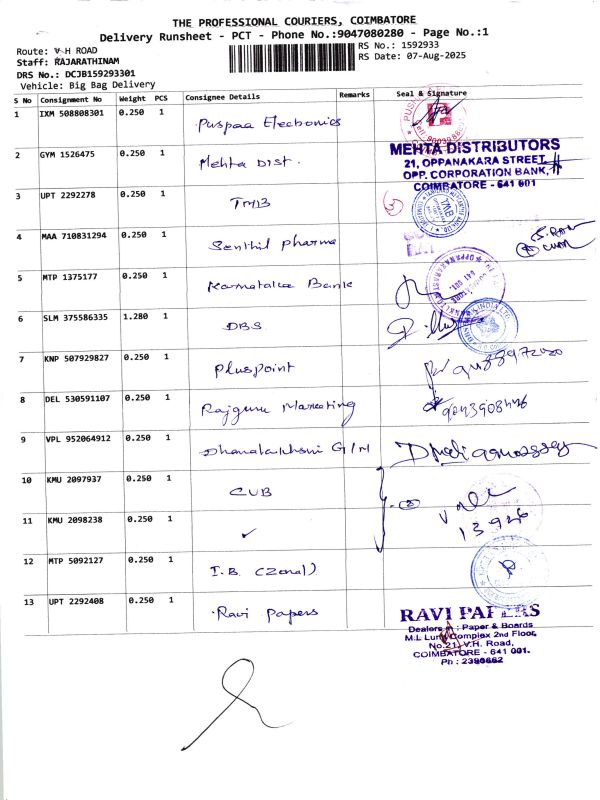 THE PROFESSIONAL COURIERS, COIMBATORE
Delivery Runsheet - PCT - Phone No.:9047080280 - Page No.:1
Route: V H ROAD
Staff: RAJARATHINAM
DRS No.: DCJB159293301
Vehicle: Big Bag Delivery
RS No.: 1592933
RS Date: 07-Aug-2025
S No Consignment No Weight PCS Consignee Details Remarks Seal & Signature
1 IXM 508808301 0.250 1 Puspaa Electronics
2 GYM 1526475 0.250 1 Mehta Dist.
MEHTA DISTRIBUTORS
21, OPPANAKARA STREET,
OPP. CORPORATION BANK,
COIMBATORE - 641 001
3 UPT 2292278 0.250 1 TMB
4 MAA 710831294 0.250 1 Senthil pharma
5 MTP 1375177 0.250 1 Karnataka Bank
6 SLM 375586335 1.280 1 DBS
7 KNP 507929827 0.250 1 Pluspoint
8 DEL 530591107 0.250 1 Rajguru Marketing
9 VPL 952064912 0.250 1 Dhanalakshmi G/M
10 KMU 2097937 0.250 1 CUB
11 KMU 2098238 0.250 1 ✓
12 MTP 5092127 0.250 1 I.B. (Zonal)
13 UPT 2292408 0.250 1 Ravi Papers
RAVI PAPERS
Dealers in : Paper & Boards
M.L Complex 2nd Floor,
No.21, V.H. Road,
COIMBATORE - 641 001.
Ph : 2390662